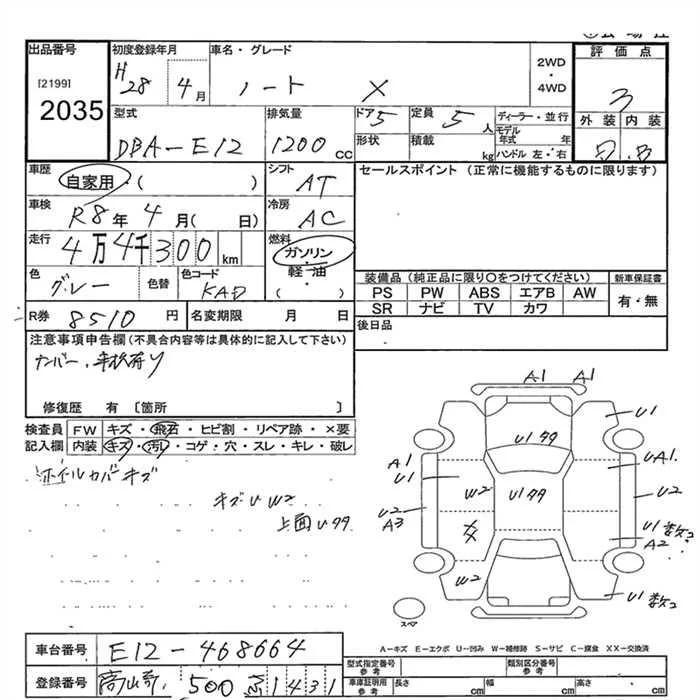 出品番号
[2199]
2035
初度登録年月
H28 4月
車名・グレード
ノート X
2WD
・
4WD
評価点
3
外装 内装
型式
DBA-E12
排気量
1200cc
ドア 5
定員 5人
ディーラー・並行
モデル年式 年
形状
積載 kg
ハンドル 左・右
車歴
自家用・( )
シフト
AT
セールスポイント (正常に機能するものに限ります)
車検
R8年 4月( 日)
冷房
AC
走行
4万4千300km
燃料
ガソリン・
軽・油
( )
色
グレー
色替
色コード
KAD
装備品(純正品に限り○をつけてください)
新車保証書
PS PW ABS エアB AW
有・無
SR ナビ TV カワ
R券 8510円
名変期限 月 日
後日品
注意事項申告欄(不具合内容等は具体的に記入して下さい)
修復歴 有 〔箇所 〕
検査員 FW キズ・飛石・ヒビ割・リペア跡・×要
記入欄 内装 キズ・汚レ・コゲ・穴・スレ・キレ・破レ
ホイルカバーキズ
キズU W2
上面Uタタ
A1 A1
U1
U1タタ
A1
U1
UA1
W2
U1タタ
U2
U2
A3
U1数コ
A2
W2
U1数コ
スペア
A-キズ E-エクボ U-凹み W-補修跡 S-サビ C-腐食 XX-交換済
車台番号
E12-468664
型式指定番号
参考
類別区分番号
参考
登録番号
500 1431
車庫証明用
参考
長さ cm
幅 cm
高さ cm